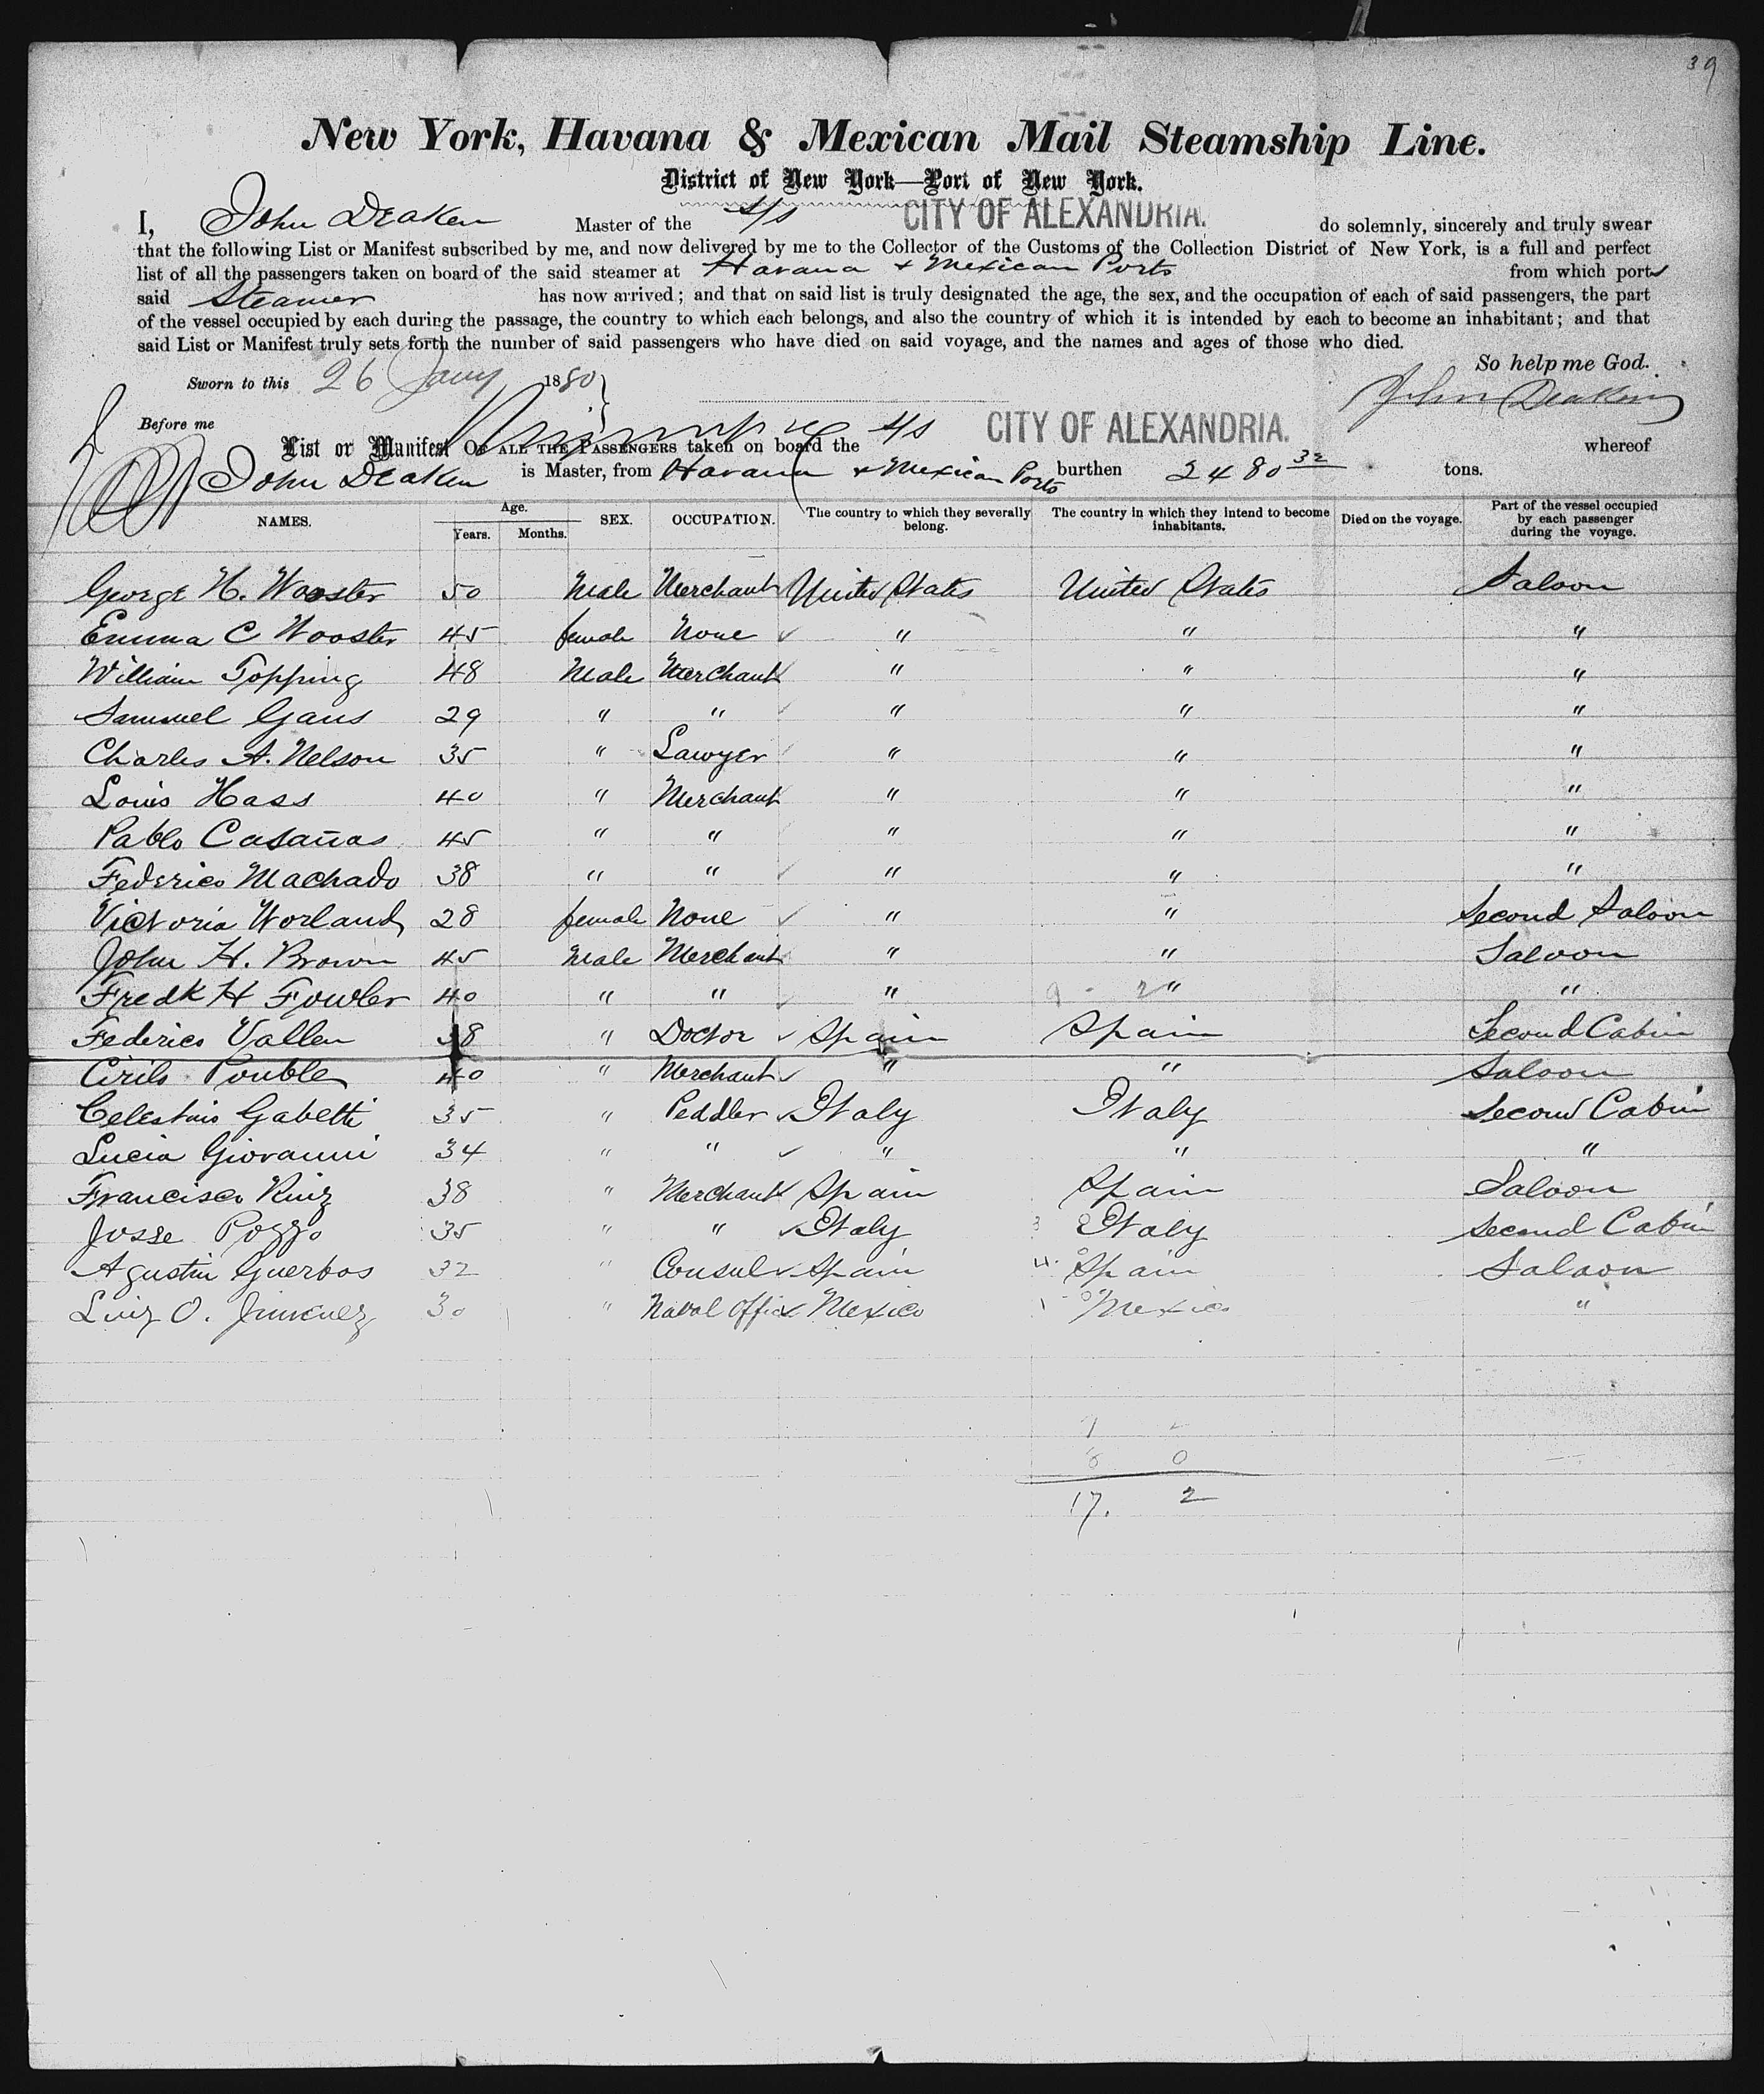 39
New York, Havana & Mexican Mail Steamship Line.
District of New York—Port of New York.
I, John Deaken Master of the S/s CITY OF ALEXANDRIA. do solemnly, sincerely and truly swear
that the following List or Manifest subscribed by me, and now delivered by me to the Collector of the Customs of the Collection District of New York, is a full and perfect
list of all the passengers taken on board of the said steamer at Havana & Mexican Ports from which ports
said Steamer has now arrived; and that on said list is truly designated the age, the sex, and the occupation of each of said passengers, the part
of the vessel occupied by each during the passage, the country to which each belongs, and also the country of which it is intended by each to become an inhabitant; and that
said List or Manifest truly sets forth the number of said passengers who have died on said voyage, and the names and ages of those who died.
So help me God.
Sworn to this 26 Jany 1880
John Deaken
Before me
List or Manifest OF ALL THE PASSENGERS taken on board the S/s CITY OF ALEXANDRIA. whereof
John Deaken is Master, from Havana & Mexican Ports burthen 2480 32 tons.
NAMES. Age. Years. Months. SEX. OCCUPATION. The country to which they severally belong. The country in which they intend to become inhabitants. Died on the voyage. Part of the vessel occupied by each passenger during the voyage.
George H. Wooster 50 Male Merchant United States United States Saloon
Emma C Wooster 45 female None " " "
William Topping 48 Male Merchant " " "
Samuel Gans 29 " " " " "
Charles A. Nelson 35 " Lawyer " " "
Louis Hass 40 " Merchant " " "
Pablo Casañas 45 " " " " "
Federico Machado 38 " " " " "
Victoria Worland 28 female None " " Second Saloon
John H. Brown 45 Male Merchant " " Saloon
Fredk H Fowler 40 " " " 9 - 2 " "
Federico Vallen 38 " Doctor Spain Spain Second Cabin
Cirilo Pouble 40 " Merchant " " Saloon
Celestino Gabetti 35 " Peddler Italy Italy Second Cabin
Lucia Giovanni 34 " " " " "
Francisco Ruiz 38 " Merchant Spain Spain Saloon
Josse Pozzo 35 " " Italy Italy Second Cabin
Agustin Guerbos 32 " Consul Spain Spain Saloon
Luiz O. Jimenez 30 " Naval Office Mexico Mexico "
17. 2